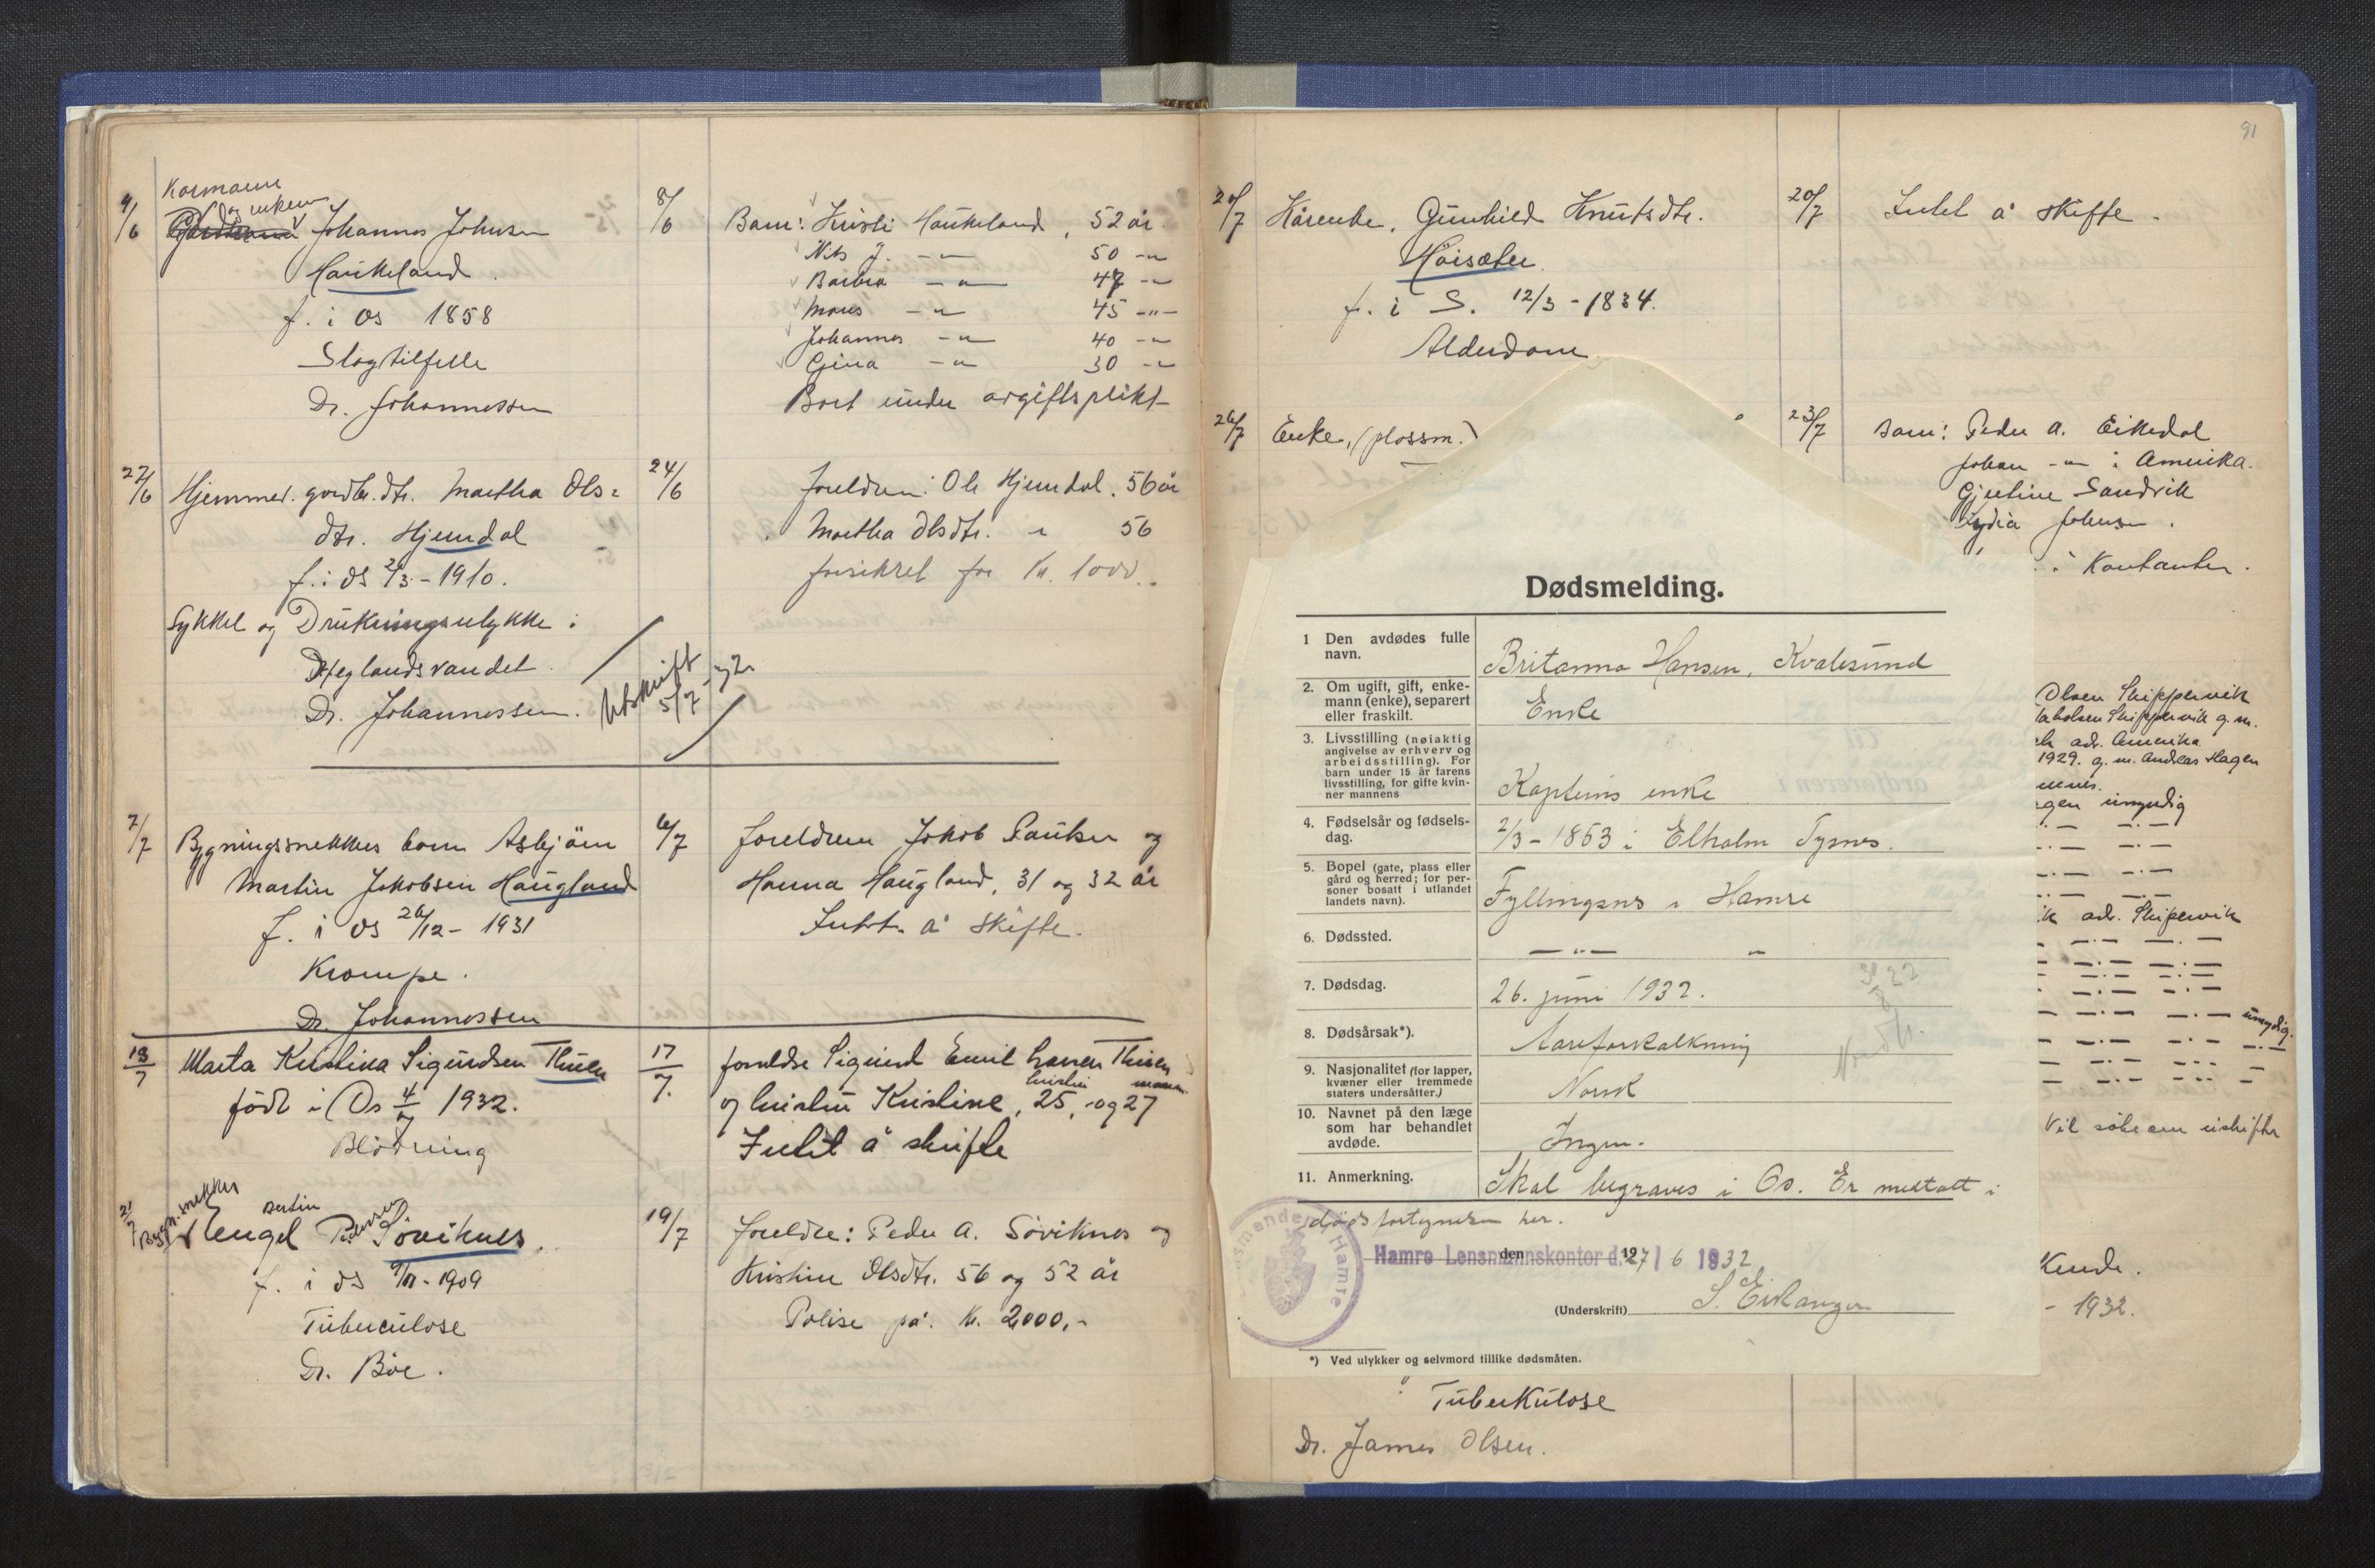 91
9/6
Kårmann
og enkem.
Johannes Johnsen
Haukeland.
f. i Os 1858
Slagtilfelle
Dr. Johannessen
8/6
Barn: Kristi Haukeland, 52 år
Nils J. -"- 50 -"-
Barbra -"- 47 -"-
Mons -"- 45 -"-
Johannes -"- 40 -"-
Gjina -"- 30 -"-
Bort under avgiftsplikt
22/6
Hjemmev. gardbr. dtr. Martha Ols=
dtr. Hjemdal
f. i Os 2/3 - 1910.
Sykkel og Drukningsulykke i
Heglandsvandet.
Dr. Johannessen.
Utskrift
5/7-32
24/6
foreldren: Ole Hjemdal, 56 år
Martha Olsdtr. " 56
forsikret for kr. 1000..
7/7
Bygningssnekkers barn Asbjörn
Martin Jakobsen Haugland
f. i Os 26/12 - 1931
Krampe.
Dr. Johannessen
6/7
foreldren Jakob Paulsen og
Hanna Haugland, 31 og 32 år
Intet å skifte.
13/7
Marta Kristina Sigurdsen Thuen
født i Os 4/7 1932.
Blödning
17/7.
foreldre Sigurd Emil Larsen Thuen
og hustru Kristine, 25, og 27
hustru mannen
Intet å skifte
21/7
Bygn.snekker
Mengel Bertin Pedersen Söviknes.
f. i Os 9/11 - 1909
Tuberculose
Dr. Böe.
19/7
foreldre: Peder A. Söviknes og
Kristine Olsdtr. 56 og 52 år
Polise på kr. 2000,-
20/7
Kårenke, Gunhild Knutsdtr.
Høisæter.
f. i S. 12/3 - 1834.
Alderdom.
20/7
Intet å skifte.
26/7
Enke, (plassm.)
23/7
Barn: Peder A. Eikedal
Johan -"- i Amerika.
Gjertine Sandvik
Lydia Johnsen.
i Kontanter.
Dødsmelding.
1 Den avdødes fulle
navn.
Britanna Hansen, Kvalesund
2. Om ugift, gift, enke-
mann (enke), separert
eller fraskilt.
Enke
3. Livsstilling (nøiaktig
angivelse av erhverv og
arbeidsstilling). For
barn under 15 år farens
livsstilling, for gifte kvin-
ner mannens
Kapteins enke
4. Fødselsår og fødsels-
dag.
2/3 - 1853 i Elholm Tysnes.
5. Bopel (gate, plass eller
gård og herred; for per-
soner bosatt i utlandet
landets navn).
Fyllingsnes i Hamre
6. Dødssted.
-"- "
7. Dødsdag.
26. juni 1932.
8. Dødsårsak*).
Aareforkalkning
9. Nasjonalitet (for lapper,
kvæner eller fremmede
staters undersåtter.)
Norsk
10. Navnet på den læge
som har behandlet
avdøde.
Ingen.
11. Anmerkning.
Skal begraves i Os. Er mottatt i
dødsfortegnelsen her.
Hamre Lensmannskontor d. 27/6 1932
den 19
(Underskrift) S. Eikanger
*) Ved ulykker og selvmord tillike dødsmåten.
Olsen Skippervik
Jakobsen Skippervik g.m.
adr. Amerika
1929. g.m. Andreas Hagen
gen umyndig
-"- -"-
-"- -"-
-"- -"-
-"- -"-
ik adr. Skipervik
-"- -"-
-"- -"-
-"- -"-
-"- -"- umyndig.
-"- -"- -"-
-"- -"-
-"- -"-
Vil søke om uskifte
Kunde.
- 1932.
Tuberkulose
Dr. James Olsen.